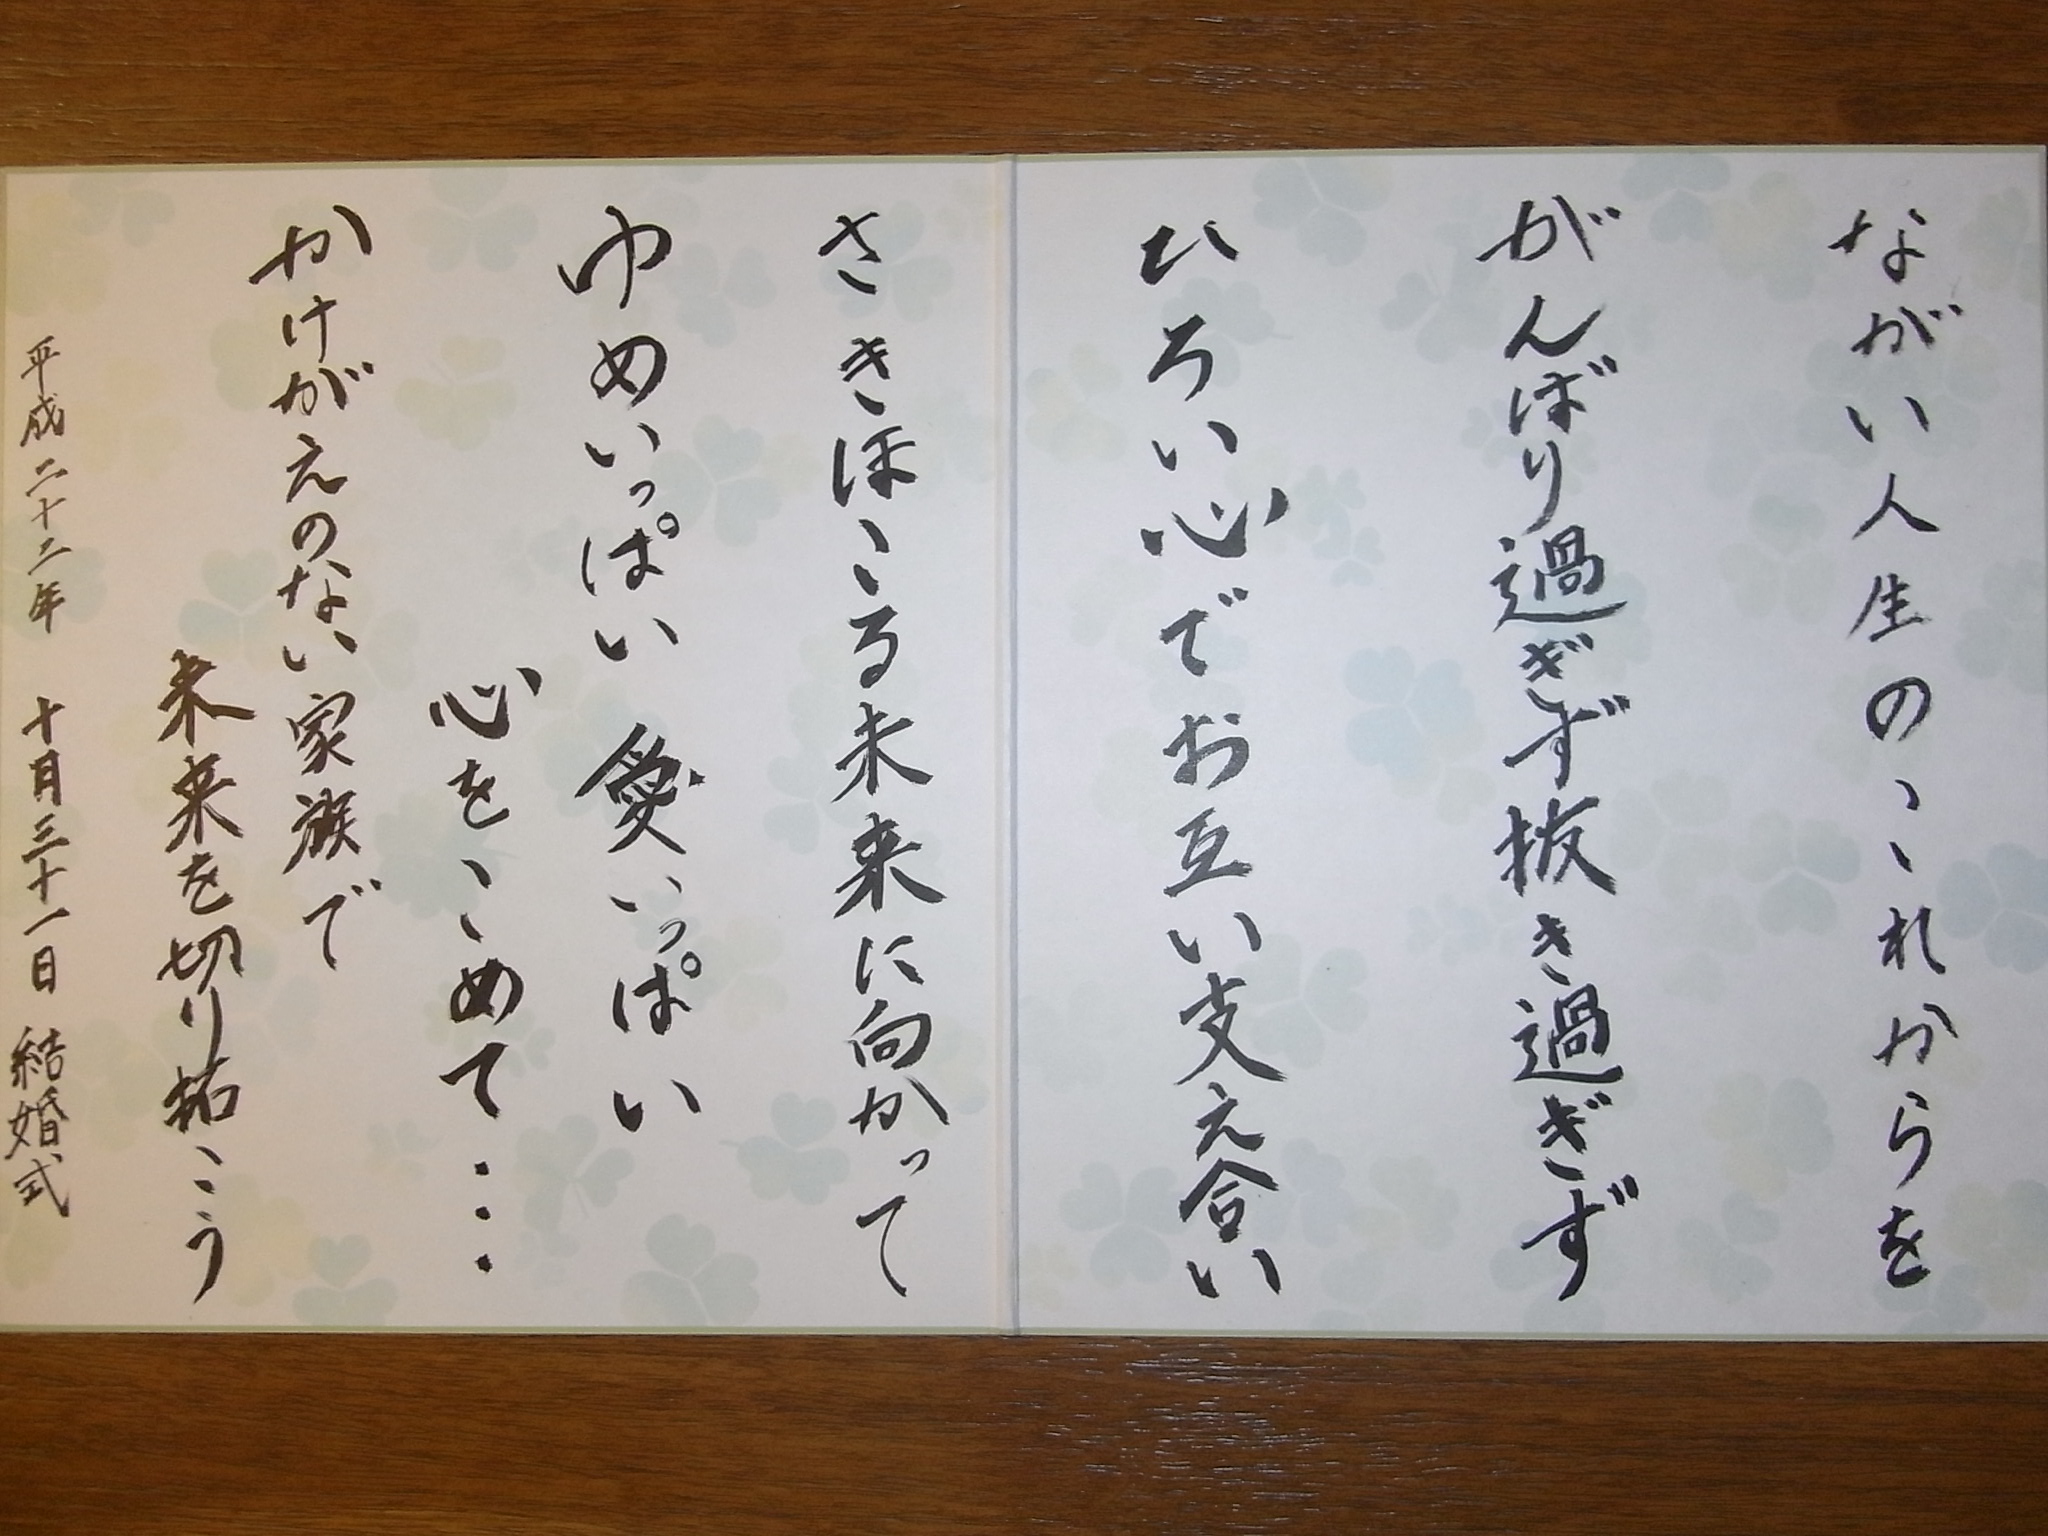 ながい人生のこれからを
がんばり過ぎず抜き過ぎず
ひろい心でお互い支え合い
さきほこる未来に向かって
ゆめいっぱい 愛いっぱい
心をこめて…
かけがえのない家族で
未来を切り拓こう
平成二十二年 十月三十一日 結婚式